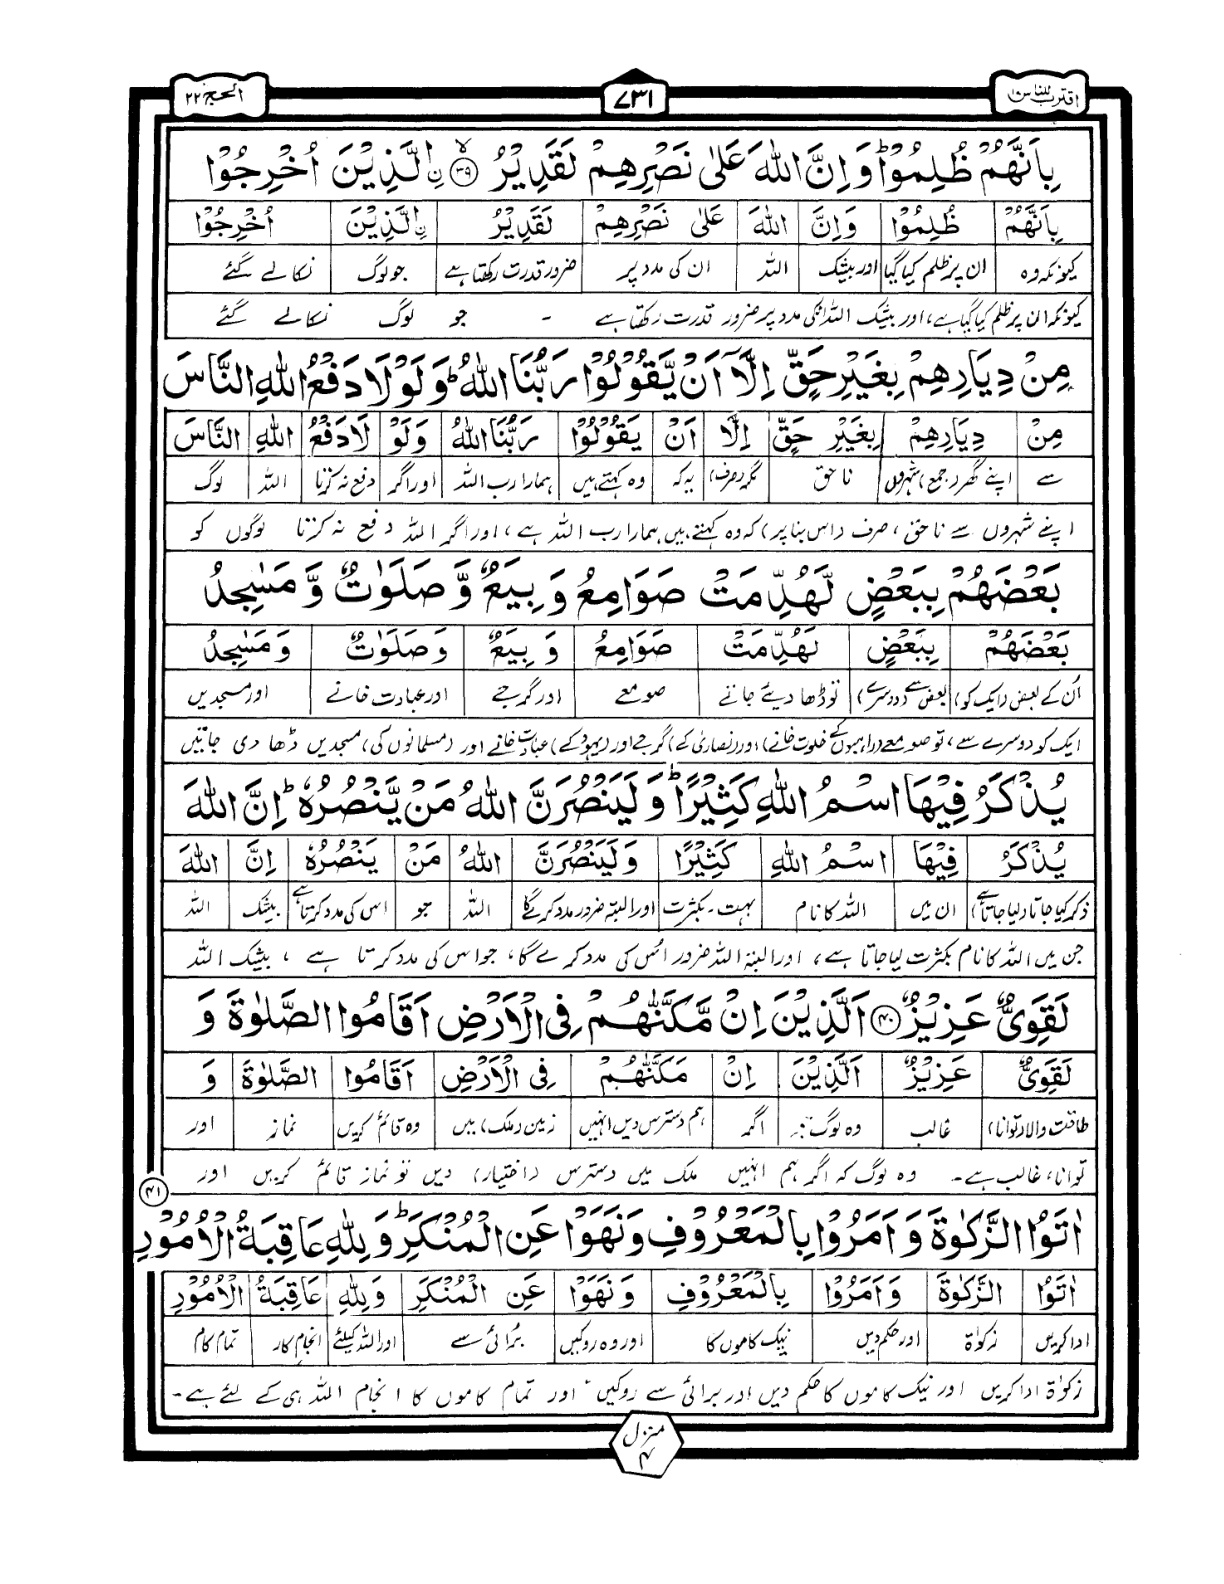 اقترب للناس ۱۷
۷۳۱
الحج ۲۲
بِاَنَّهُمْ ظُلِمُوْا ؕ وَ اِنَّ اللّٰهَ عَلٰى نَصْرِهِمْ لَقَدِيْرُ ۙ﴿۳۹﴾ ِ۟الَّذِيْنَ اُخْرِجُوْا
بِاَنَّهُمْ ظُلِمُوْا وَاِنَّ اللّٰهَ عَلٰى نَصْرِهِمْ لَقَدِيْرُ ِ۟الَّذِيْنَ اُخْرِجُوْا
کیونکہ وہ ان پر ظلم کیا گیا اور بیشک اللہ ان کی مدد پر ضرور قدرت رکھتا ہے جو لوگ نکالے گئے
کیونکہ ان پر ظلم کیا گیا ہے، اور بیشک اللہ انکی مدد پر ضرور قدرت رکھتا ہے ۔ جو لوگ نکالے گئے
مِنْ دِيَارِهِمْ بِغَيْرِ حَقٍّ اِلَّاۤ اَنْ يَّقُوْلُوْا رَبُّنَا اللّٰهُ ؕ وَلَوْلَا دَفْعُ اللّٰهِ النَّاسَ
مِنْ دِيَارِهِمْ بِغَيْرِ حَقٍّ اِلَّا اَنْ يَقُوْلُوْا رَبُّنَا اللّٰهُ وَلَوْ لَا دَفْعُ اللّٰهِ النَّاسَ
سے اپنے گھر (جمع) شہروں نا حق مگر (صرف) یہ کہ وہ کہتے ہیں ہمارا رب اللہ اور اگر دفع نہ کرتا اللہ لوگ
اپنے شہروں سے ناحق، صرف (اس بنا پر) کہ وہ کہتے ہیں ہمارا رب اللہ ہے، اور اگر اللہ دفع نہ کرتا لوگوں کو
بَعْضَهُمْ بِبَعْضٍ لَّهُدِّمَتْ صَوَامِعُ وَ بِيَعٌ وَّ صَلَوٰتٌ وَّ مَسٰجِدُ
بَعْضَهُمْ بِبَعْضٍ لَهُدِّمَتْ صَوَامِعُ وَ بِيَعٌ وَ صَلَوٰتٌ وَ مَسٰجِدُ
اُن کے بعض (ایک کو) بعض سے (دوسرے) تو ڈھا دیئے جاتے صومعے اور گرجے اور عبادت خانے اور مسجدیں
ایک کو دوسرے سے، تو صومعے (راہبوں کے خلوت خانے) اور (نصاریٰ کے) گرجے اور (یہود کے) عبادت خانے اور (مسلمانوں کی) مسجدیں ڈھا دی جاتیں
يُذْكَرُ فِيْهَا اسْمُ اللّٰهِ كَثِيْرًا ؕ وَ لَيَنْصُرَنَّ اللّٰهُ مَنْ يَّنْصُرُهٗ ؕ اِنَّ اللّٰهَ
يُذْكَرُ فِيْهَا اسْمُ اللّٰهِ كَثِيْرًا وَ لَيَنْصُرَنَّ اللّٰهُ مَنْ يَنْصُرُهٗ اِنَّ اللّٰهَ
ذکر کیا جاتا (لیا جاتا ہے) ان میں اللہ کا نام بہت۔بکثرت اور البتہ ضرور مدد کرے گا اللہ جو اس کی مدد کرتا ہے بیشک اللہ
جن میں اللہ کا نام بکثرت لیا جاتا ہے، اور البتہ اللہ ضرور اُس کی مدد کرے گا، جو اس کی مدد کرتا ہے ، بیشک اللہ
لَقَوِيٌّ عَزِيْزٌ ﴿۴۰﴾ اَلَّذِيْنَ اِنْ مَّكَّنّٰهُمْ فِي الْاَرْضِ اَقَامُوا الصَّلٰوةَ وَ
لَقَوِيٌّ عَزِيْزٌ اَلَّذِيْنَ اِنْ مَكَّنّٰهُمْ فِي الْاَرْضِ اَقَامُوا الصَّلٰوةَ وَ
طاقت والا (توانا) غالب وہ لوگ جو اگر ہم دسترس دیں انہیں زمین (ملک) میں وہ قائم کریں نماز اور
توانا، غالب ہے۔ وہ لوگ کہ اگر ہم انہیں ملک میں دسترس (اختیار) دیں تو نماز قائم کریں اور
اٰتَوُا الزَّكٰوةَ وَ اَمَرُوْا بِالْمَعْرُوْفِ وَ نَهَوْا عَنِ الْمُنْكَرِ ؕ وَلِلّٰهِ عَاقِبَةُ الْاُمُوْرِ ﴿۴۱﴾
اٰتَوُا الزَّكٰوةَ وَ اَمَرُوْا بِالْمَعْرُوْفِ وَ نَهَوْا عَنِ الْمُنْكَرِ وَلِلّٰهِ عَاقِبَةُ الْاُمُوْرِ
ادا کریں زکوٰۃ اور حکم دیں نیک کاموں کا اور وہ روکیں بُرائی سے اور اللہ کیلئے انجام کار تمام کام
زکوٰۃ ادا کریں اور نیک کاموں کا حکم دیں اور برائی سے روکیں ، اور تمام کاموں کا انجام اللہ ہی کے لئے ہے۔
منزل ۴